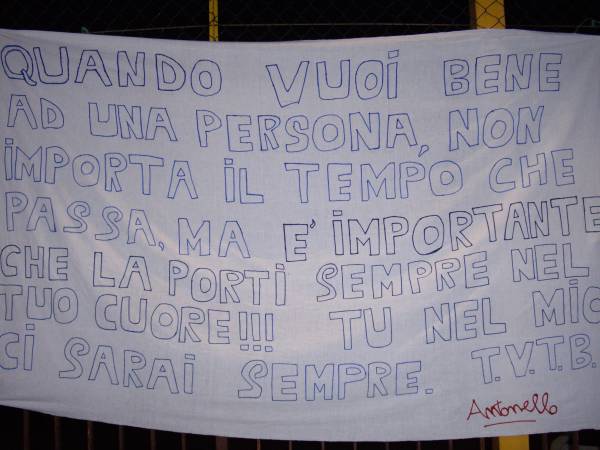 QUANDO VUOi BENE
AD UNA PERSONA, NON
iMPORTA iL TEMPO CHE
PASSA, MA E' iMPORTANTE
CHE LA PORTi SEMPRE NEL
TUO CUORE!!! TU NEL MIO
Ci SARAi SEMPRE. T.V.T.B.
Antonello